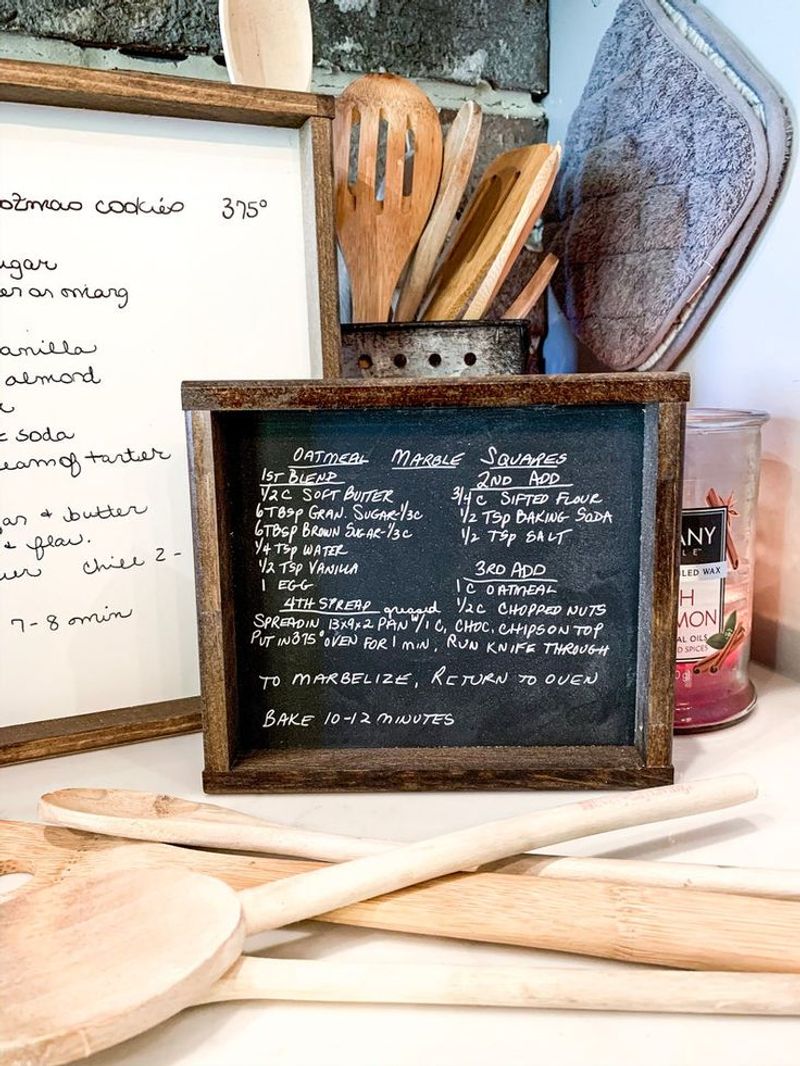 cookies 375°
ugar
er or marg
anilla
almond
soda
eam of tarter
& butter
& flav.
chill 2 -
7-8 min
OATMEAL MARBLE SQUARES
1ST BLEND
1/2 C SOFT BUTTER
6 TBSP GRAN. SUGAR-1/3C
6 TBSP BROWN SUGAR-1/3C
1/4 TSP WATER
1/2 TSP VANILLA
1 EGG
2ND ADD
3/4 C SIFTED FLOUR
1/2 TSP BAKING SODA
1/2 TSP SALT
3RD ADD
1 C OATMEAL
1/2 C CHOPPED NUTS
4TH SPREAD greased
SPREAD IN 13x9x2 PAN W/1 C, CHOC, CHIPS ON TOP
PUT IN 375° OVEN FOR 1 MIN, RUN KNIFE THROUGH
TO MARBELIZE, RETURN TO OVEN
BAKE 10-12 MINUTES
ANY
LE™
LED WAX
H
MON
AL OILS
D SPICES